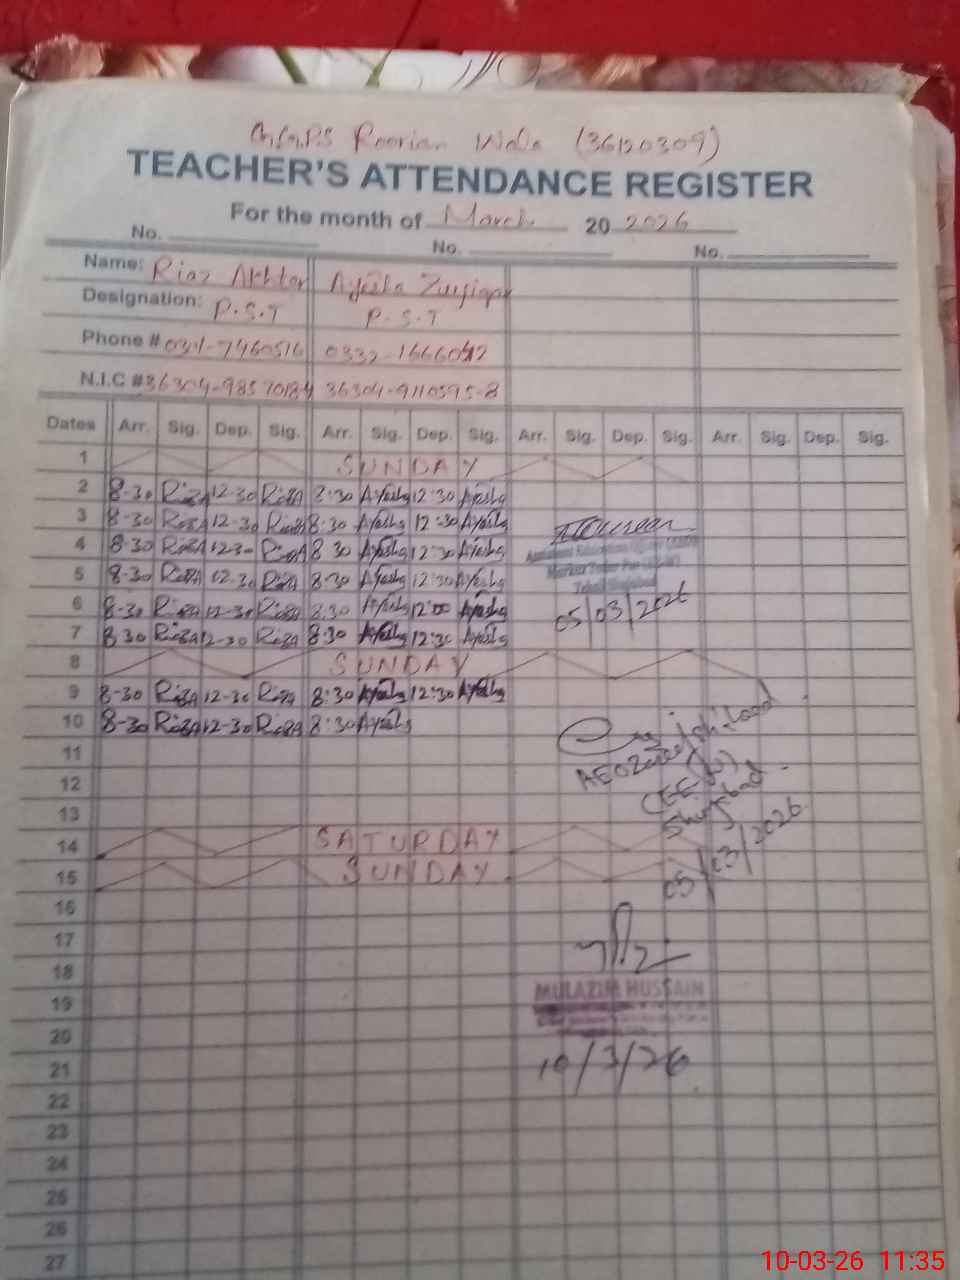 G.G.P.S Roorian Wala (36120309)
TEACHER'S ATTENDANCE REGISTER
For the month of March 20 2026
No. No. No.
Name: Riaz Akhtar Ayesha
Designation: P.S.T P.S.T
Phone # 0332-1666042
N.I.C # 36304-9110595-8
Dates Arr. Sig. Dep. Sig. Arr. Sig. Dep. Sig. Arr. Sig. Dep. Sig. Arr. Sig. Dep. Sig.
1 SUNDAY
2 8-30 12-30 8:30 Ayesha 12:30 Ayesha
3 8-30 12-30 8:30 Ayesha 12:30 Ayesha
4 8-30 12-30 8 30 Ayesha 12:30 Ayesha
5 8-30 12-30 8:30 Ayesha 12:30 Ayesha
6 8-30 12-30 8:30 Ayesha 12:00 Ayesha
05/03/2026
7 8 30 12-30 8:30 Ayesha 12:30 Ayesha
8 SUNDAY
9 8-30 12-30 8:30 Ayesha 12:30 Ayesha
10 8-30 12-30 8:30 Ayesha
11
AEO
12
(CEE-
13
14 SATURDAY
05/03/2026
15 SUNDAY
16
17
18
19 MULAZIM HUSSAIN
20
21 10/3/26
22
23
24
25
26
27
10-03-26 11:35